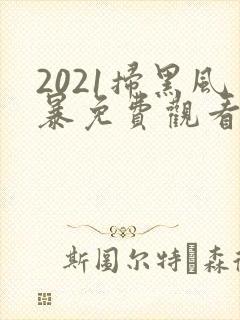 2021掃黑風
暴免費觀看
斯图尔特·森